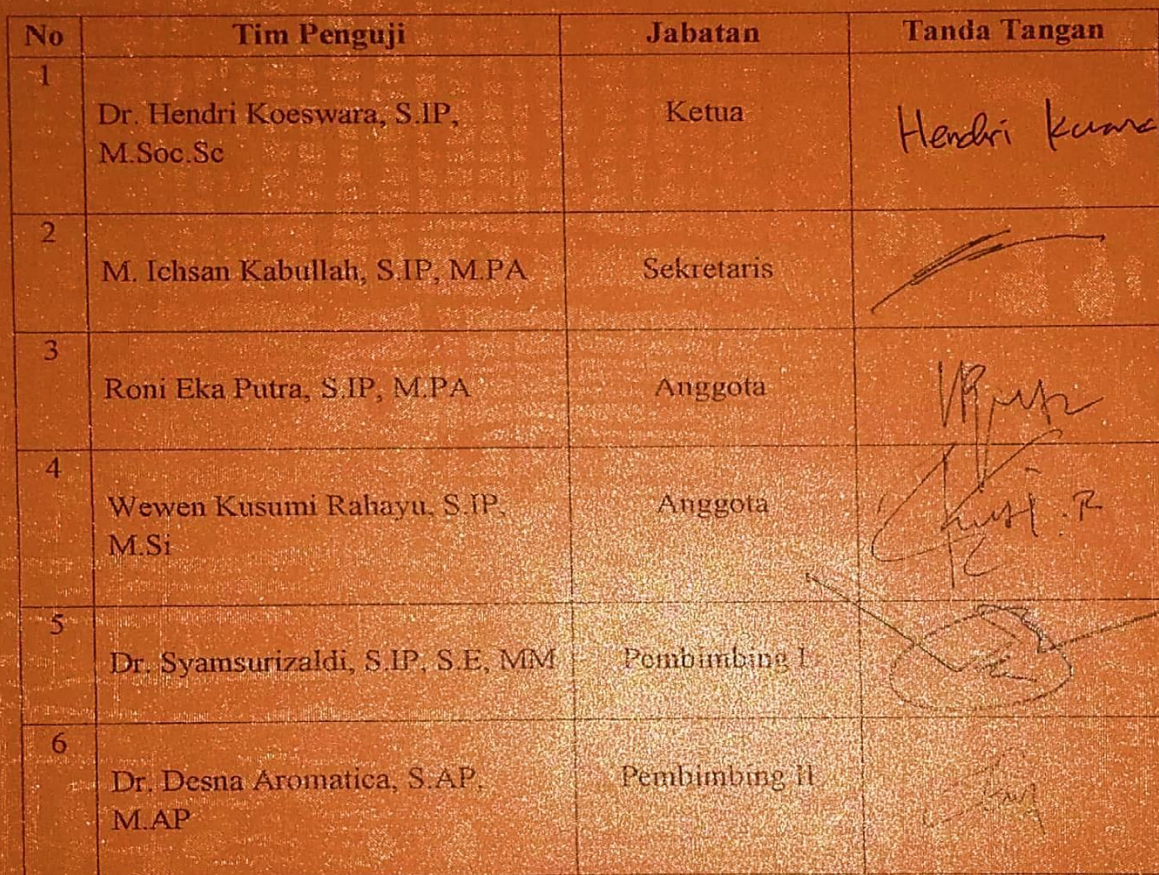 No Tim Penguji Jabatan Tanda Tangan
1
Dr. Hendri Koeswara, S.IP, Ketua Hendri
M.Soc.Sc
2
M. Ichsan Kabullah, S.IP, M.PA Sekretaris
3
Roni Eka Putra, S.IP, M.PA Anggota
4
Wewen Kusumi Rahayu, S.IP, Anggota
M.Si
5
Dr. Syamsurizaldi, S.IP, S.E, MM Pembimbing I
6
Dr. Desna Aromatica, S.AP, Pembimbing II
M.AP